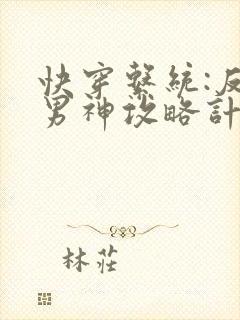 快穿繫統:反
男神攻略計
林莊